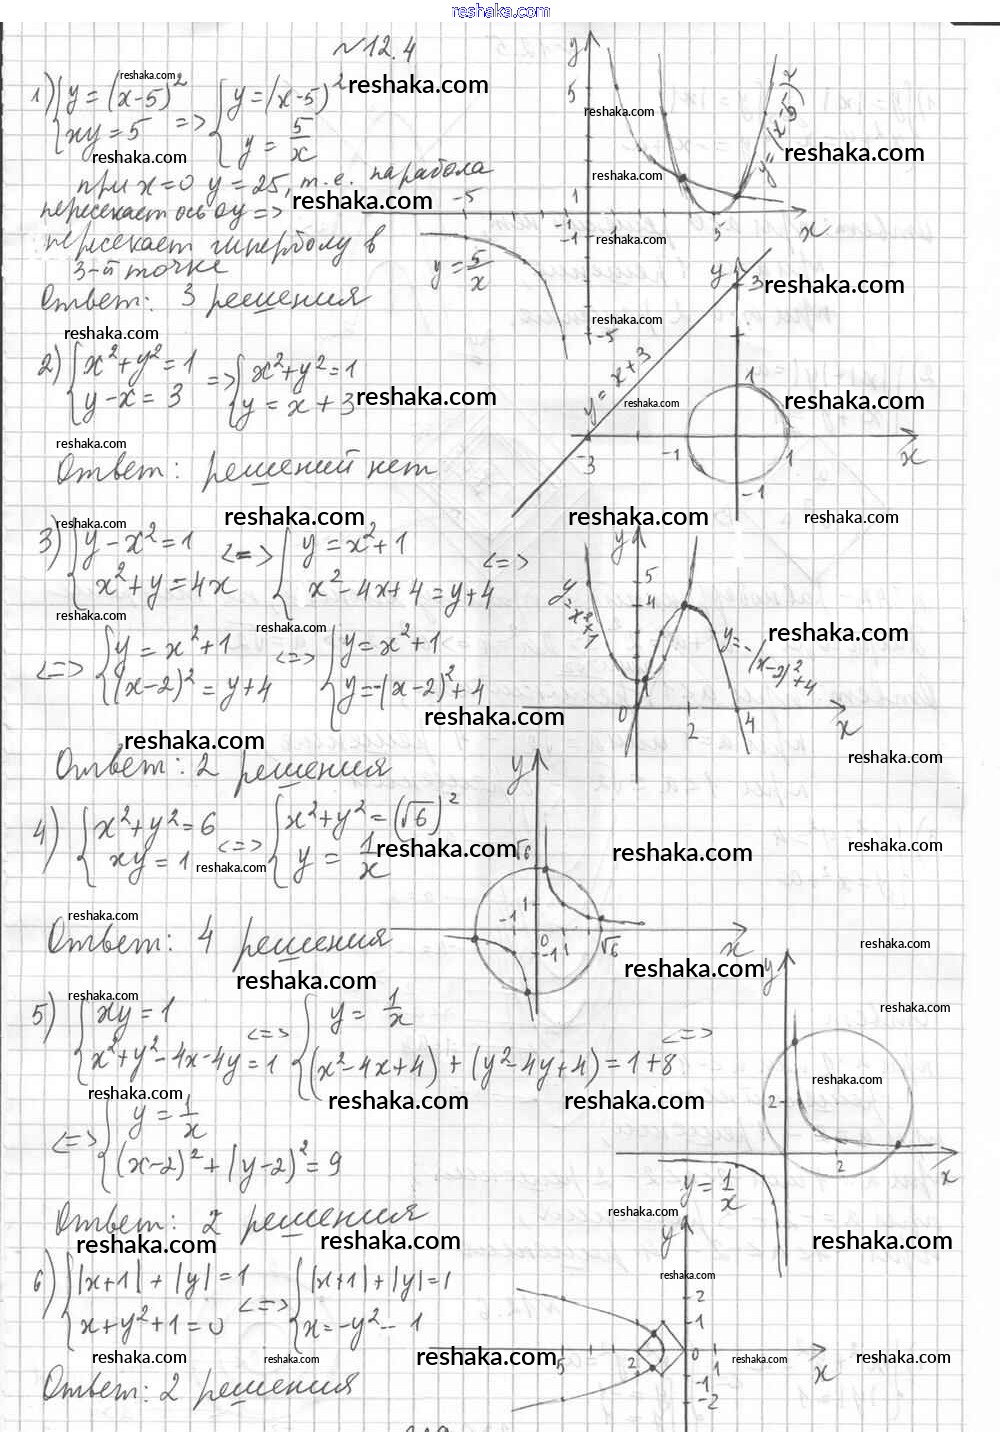 reshaka.com
№12.4
1) { y = (x-5)²
xy = 5
=> { y = (x-5)²
y = 5/x
при x=0 y=25, т.е. парабола
пересекает ось Oy =>
пересекает гиперболу в
3-й точке
Ответ: 3 решения
y
5
1
-5
-1
-1
1
5
x
-5
y = 5/x
y = (x-5)²
2) { x²+y²=1
y-x=3
=> { x²+y²=1
y=x+3
Ответ: решений нет
y
3
y=x+3
1
-3
-1
1
x
-1
3) { y-x²=1
x²+y=4x
<=> { y=x²+1
x²-4x+4=y+4
<=>
<=> { y=x²+1
(x-2)²=y+4
<=> { y=x²+1
y=-(x-2)²+4
Ответ: 2 решения
y
5
4
y=x²+1
y=-(x-2)²+4
0
2
4
x
4) { x²+y²=6
xy=1
<=> { x²+y²=(√6)²
y=1/x
Ответ: 4 решения
y
√6
1
-1
0
1
√6
-1
x
5) { xy=1
x²+y²-4x-4y=1
<=> { y=1/x
(x²-4x+4)+(y²-4y+4)=1+8
<=>
<=> { y=1/x
(x-2)²+(y-2)²=9
Ответ: 2 решения
y
2
2
x
y=1/x
6) { |x+1|+|y|=1
x+y²+1=0
<=> { |x+1|+|y|=1
x=-y²-1
Ответ: 2 решения
y
2
1
5
2
0
1
x
-1
-2
reshaka.com